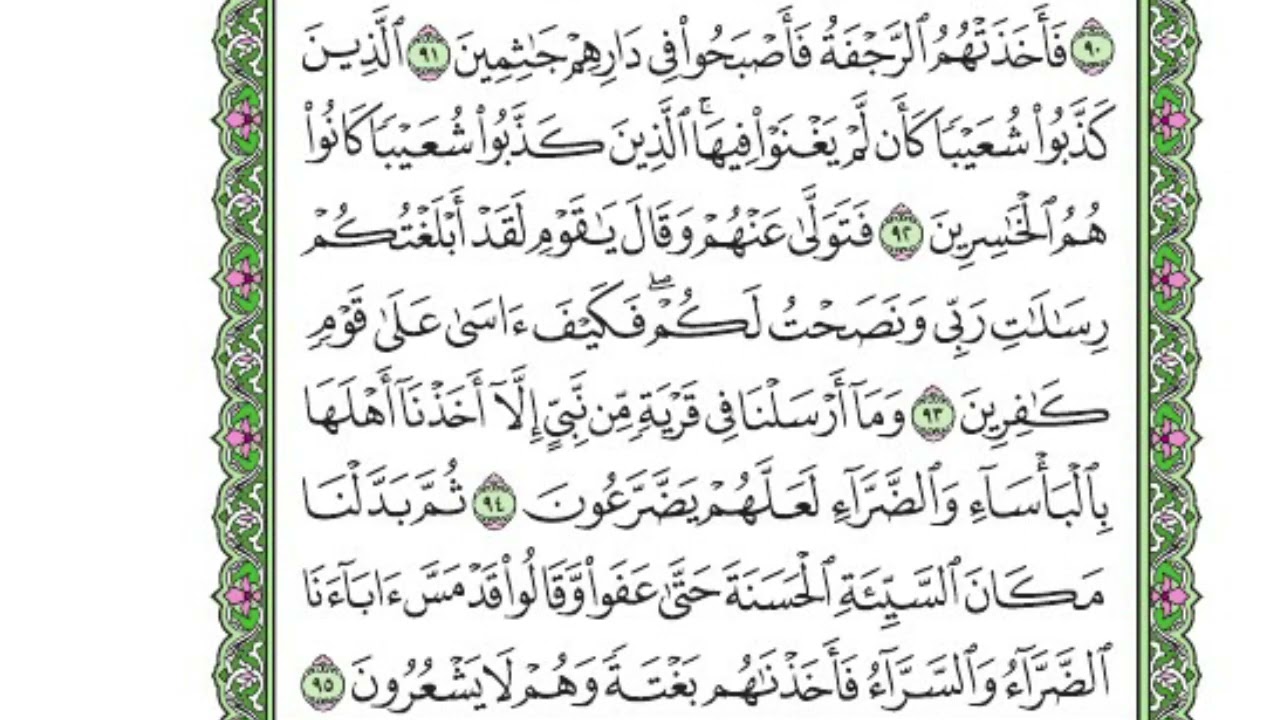 ٩٠ فَأَخَذَتْهُمُ ٱلرَّجْفَةُ فَأَصْبَحُوا۟ فِى دَارِهِمْ جَٰثِمِينَ ٩١ ٱلَّذِينَ
كَذَّبُوا۟ شُعَيْبًا كَأَن لَّمْ يَغْنَوْا۟ فِيهَا ۚ ٱلَّذِينَ كَذَّبُوا۟ شُعَيْبًا كَانُوا۟
هُمُ ٱلْخَٰسِرِينَ ٩٢ فَتَوَلَّىٰ عَنْهُمْ وَقَالَ يَٰقَوْمِ لَقَدْ أَبْلَغْتُكُمْ
رِسَٰلَٰتِ رَبِّى وَنَصَحْتُ لَكُمْ ۖ فَكَيْفَ ءَاسَىٰ عَلَىٰ قَوْمٍ
كَٰفِرِينَ ٩٣ وَمَآ أَرْسَلْنَا فِى قَرْيَةٍ مِّن نَّبِىٍّ إِلَّآ أَخَذْنَآ أَهْلَهَا
بِٱلْبَأْسَآءِ وَٱلضَّرَّآءِ لَعَلَّهُمْ يَضَّرَّعُونَ ٩٤ ثُمَّ بَدَّلْنَا
مَكَانَ ٱلسَّيِّئَةِ ٱلْحَسَنَةَ حَتَّىٰ عَفَوا۟ وَّقَالُوا۟ قَدْ مَسَّ ءَابَآءَنَا
ٱلضَّرَّآءُ وَٱلسَّرَّآءُ فَأَخَذْنَٰهُم بَغْتَةً وَهُمْ لَا يَشْعُرُونَ ٩٥